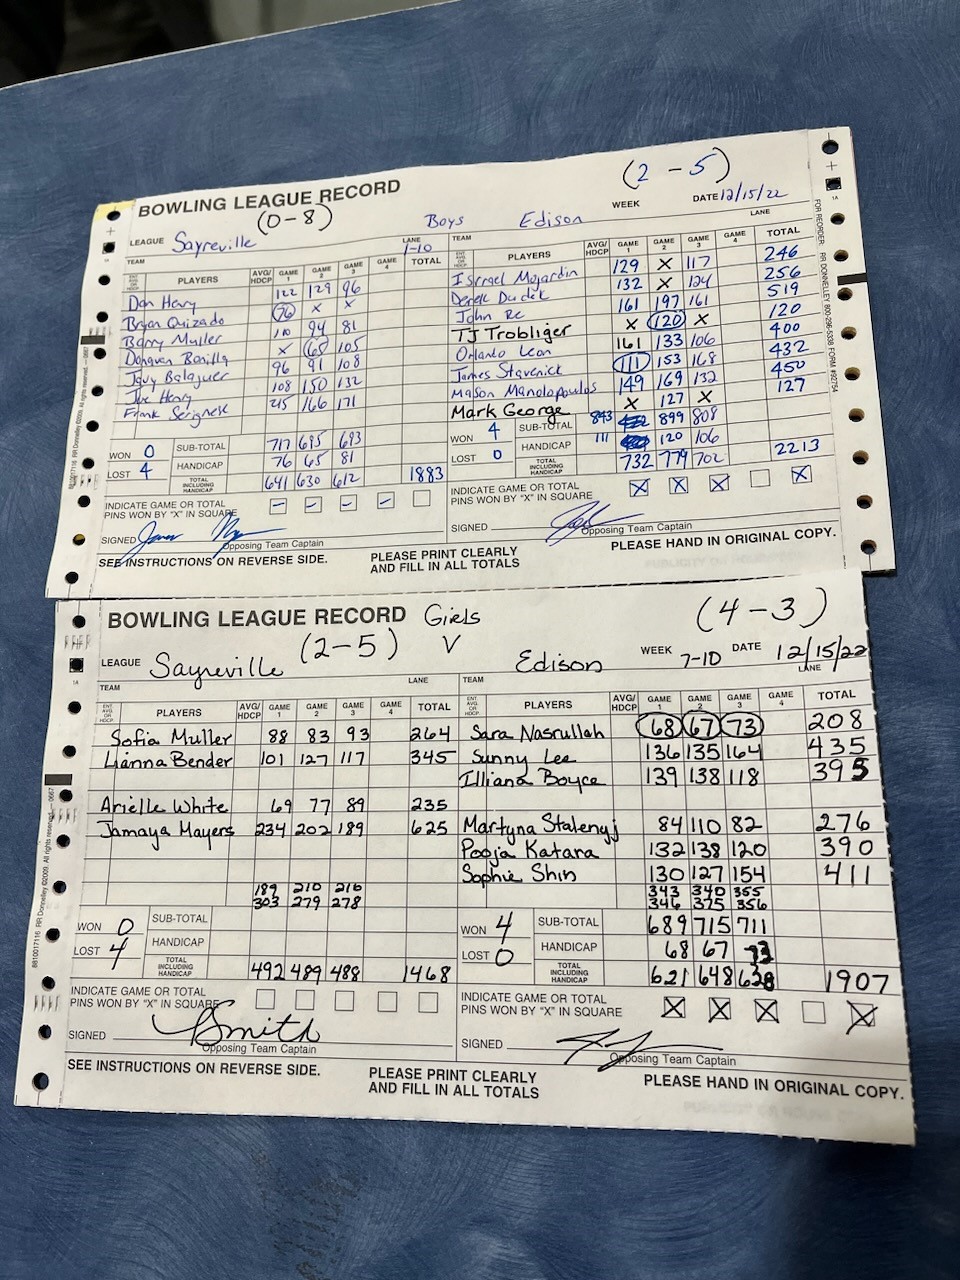 BOWLING LEAGUE RECORD
(0-8)
(2-5)
WEEK
DATE 12/15/22
LEAGUE Sayreville
Boys Edison
LANE 1-10
LANE
TEAM
TEAM
ENT. AVG. OR HDCP. PLAYERS AVG/HDCP GAME 1 GAME 2 GAME 3 GAME 4 TOTAL
Dan Henry 122 129 96
Bryan Quizado 76 X X
Barry Muller 110 94 81
Donovan Bonilla X 65 105
Jayy Balaguer 96 91 108
Joe Henry 108 150 132
Frank Serignese 215 166 171
WON 0
LOST 4
SUB-TOTAL 717 695 693
HANDICAP 76 65 81
TOTAL INCLUDING HANDICAP 641 630 612 1883
INDICATE GAME OR TOTAL
PINS WON BY "X" IN SQUARE - - - -
SIGNED
Opposing Team Captain
SEE INSTRUCTIONS ON REVERSE SIDE.
PLEASE PRINT CLEARLY
AND FILL IN ALL TOTALS
PLAYERS AVG/HDCP GAME 1 GAME 2 GAME 3 GAME 4 TOTAL
Israel Mojardin 129 X 117 246
Derek Dudek 132 X 124 256
John Re 161 197 161 519
TJ Trobliger X 120 X 120
Orlando Leon 161 133 106 400
James Stavenick 111 153 168 432
Mason Manolopoulos 149 169 132 450
Mark George X 127 X 127
WON 4
LOST 0
SUB-TOTAL 843 899 808
HANDICAP 111 120 106
TOTAL INCLUDING HANDICAP 732 779 702 2213
INDICATE GAME OR TOTAL
PINS WON BY "X" IN SQUARE X X X X
SIGNED
Opposing Team Captain
PLEASE HAND IN ORIGINAL COPY.
FOR REORDER: RR DONNELLEY 800-296-5338 FORM #92754
8810017116 RR Donnelley ©2009. All rights reserved. — 0667
BOWLING LEAGUE RECORD Girls
(2-5) V
(4-3)
WEEK 7-10 DATE 12/15/22
LEAGUE Sayreville
Edison
LANE
TEAM
LANE
TEAM
ENT. AVG. OR HDCP. PLAYERS AVG/HDCP GAME 1 GAME 2 GAME 3 GAME 4 TOTAL
Sofia Muller 88 83 93 264
Lianna Bender 101 127 117 345
Arielle White 69 77 89 235
Jamaya Mayers 234 202 189 625
189 210 216
303 279 278
WON 0
LOST 4
SUB-TOTAL
HANDICAP
TOTAL INCLUDING HANDICAP 492 489 488 1468
INDICATE GAME OR TOTAL
PINS WON BY "X" IN SQUARE
SIGNED Smith
Opposing Team Captain
SEE INSTRUCTIONS ON REVERSE SIDE.
PLEASE PRINT CLEARLY
AND FILL IN ALL TOTALS
ENT. AVG. OR HDCP. PLAYERS AVG/HDCP GAME 1 GAME 2 GAME 3 GAME 4 TOTAL
Sara Nasrullah 68 67 73 208
Sunny Lee 136 135 164 435
Illiana Boyce 139 138 118 395
Martyna Stalenyj 84 110 82 276
Pooja Katara 132 138 120 390
Sophie Shin 130 127 154 411
343 340 355
346 375 356
WON 4
LOST 0
SUB-TOTAL 689 715 711
HANDICAP 68 67 73
TOTAL INCLUDING HANDICAP 621 648 638 1907
INDICATE GAME OR TOTAL
PINS WON BY "X" IN SQUARE X X X X
SIGNED
Opposing Team Captain
PLEASE HAND IN ORIGINAL COPY.
8810017116 RR Donnelley ©2009. All rights reserved. — 0667